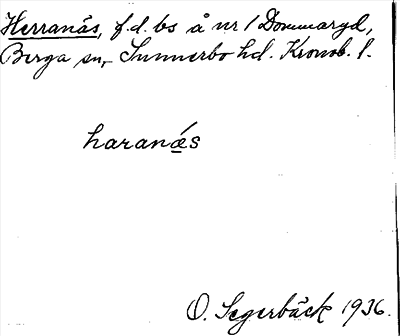 Herranäs, f.d. bs å nr 1 Dommaryd,
Berga sn, Sunnerbo hd. Kronob. l.
haranæ̀s
O. Segerbäck 1936.